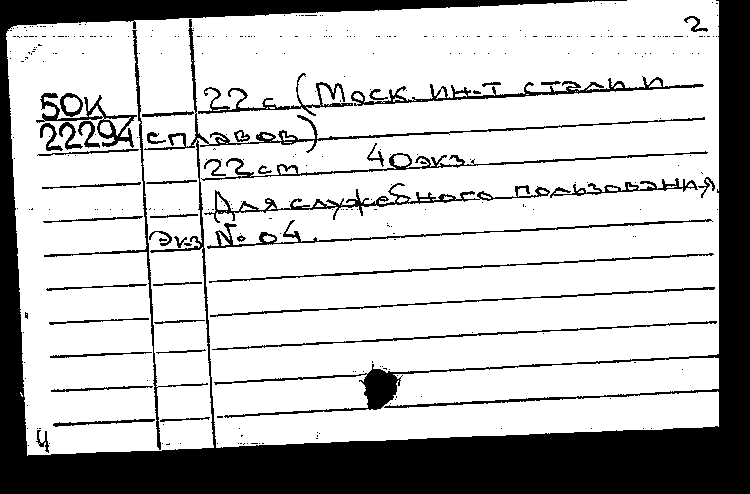 2
50к 22 с (Моск. ин-т стали и
22294 сплавов)
22 см 40экз.
Для служебного пользования
Экз № 04.
ч